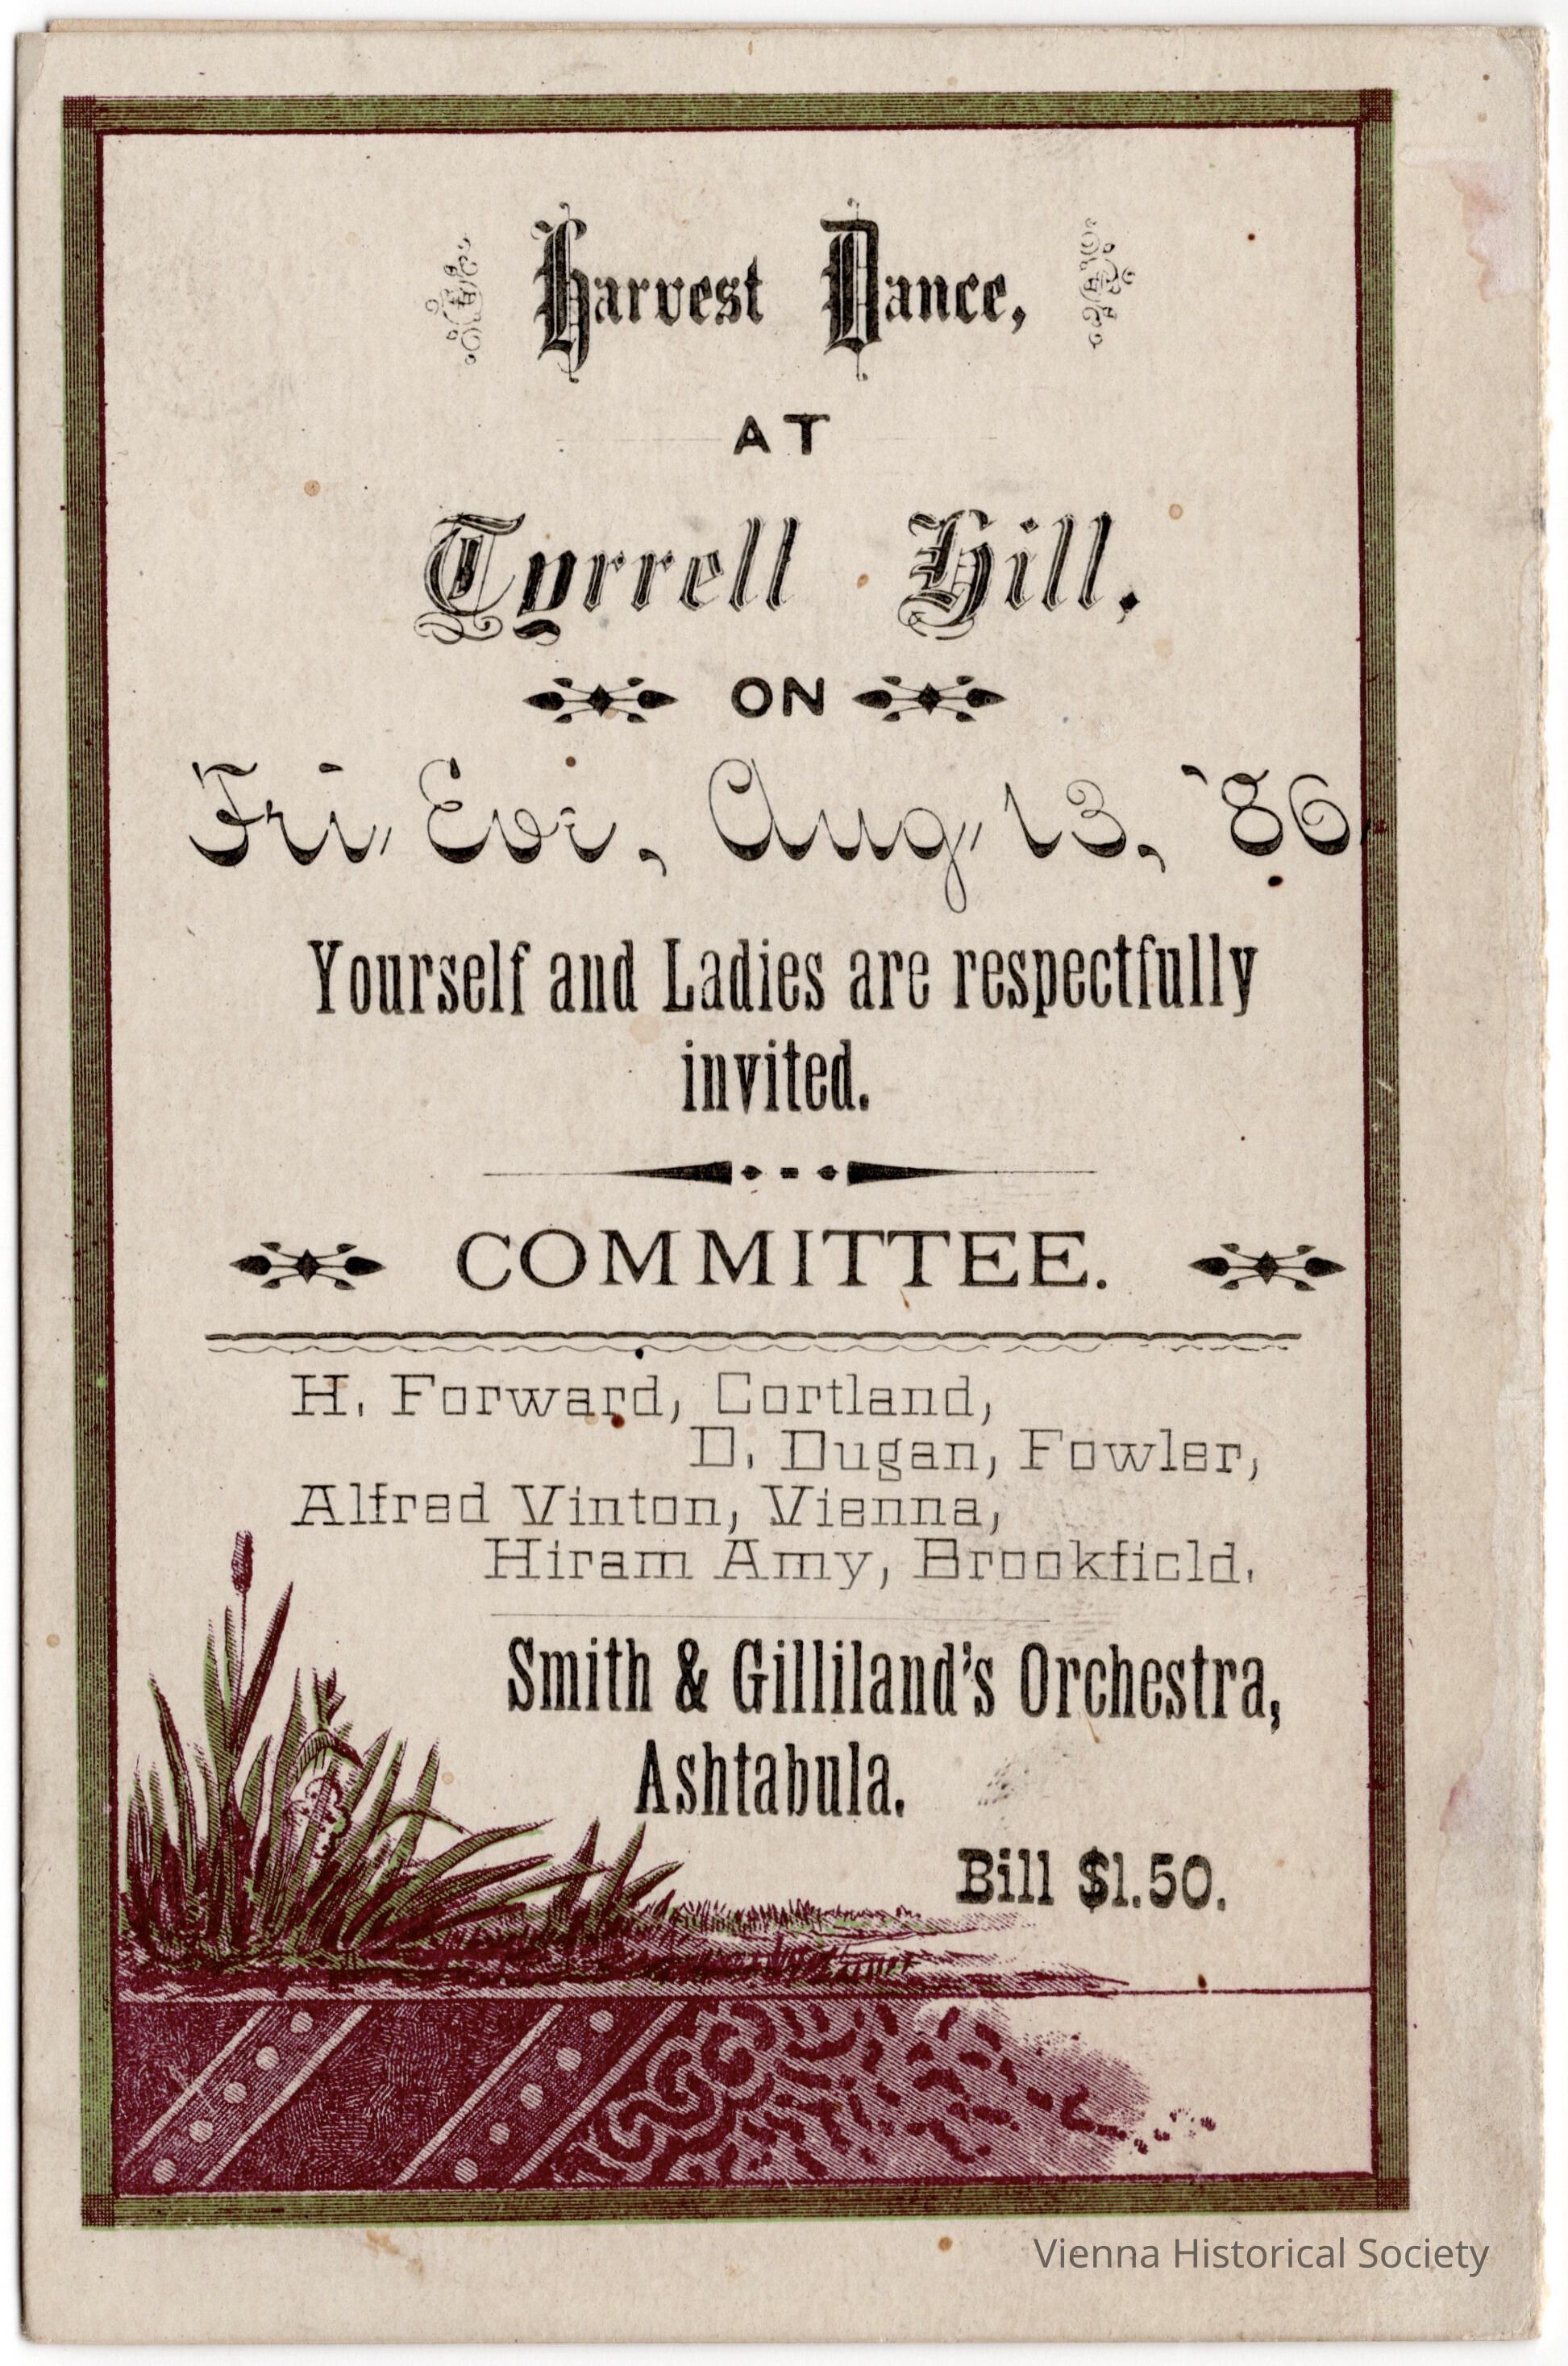 Harvest Dance,
AT
Tyrrell Hill.
ON
Fri, Eve, Aug, 13, '86,
Yourself and Ladies are respectfully
invited.
COMMITTEE.
H. Forward, Cortland,
D. Dugan, Fowler,
Alfred Vinton, Vienna,
Hiram Amy, Brookfield.
Smith & Gilliland's Orchestra,
Ashtabula.
Bill $1.50.
Vienna Historical Society